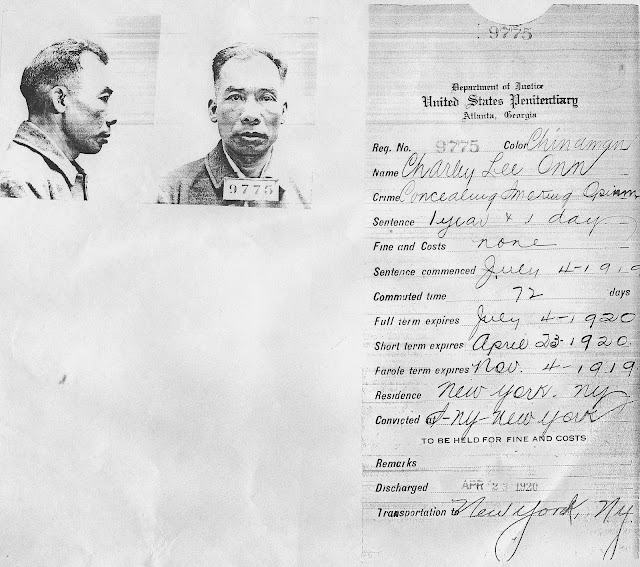 9775
9775
Department of Justice
United States Penitentiary
Atlanta, Georgia
Reg. No. 9775 Color Chinaman
Name Charley Lee Onn
Crime Concealing Opium
Sentence 1 year & 1 day
Fine and Costs none
Sentence commenced July 4-1919
Commuted time 72 days
Full term expires July 4-1920
Short term expires April 23-1920.
Parole term expires Nov. 4-1919
Residence New York, NY
Convicted at S-NY-New York
TO BE HELD FOR FINE AND COSTS
Remarks
Discharged APR 23 1920
Transportation to New York, NY.